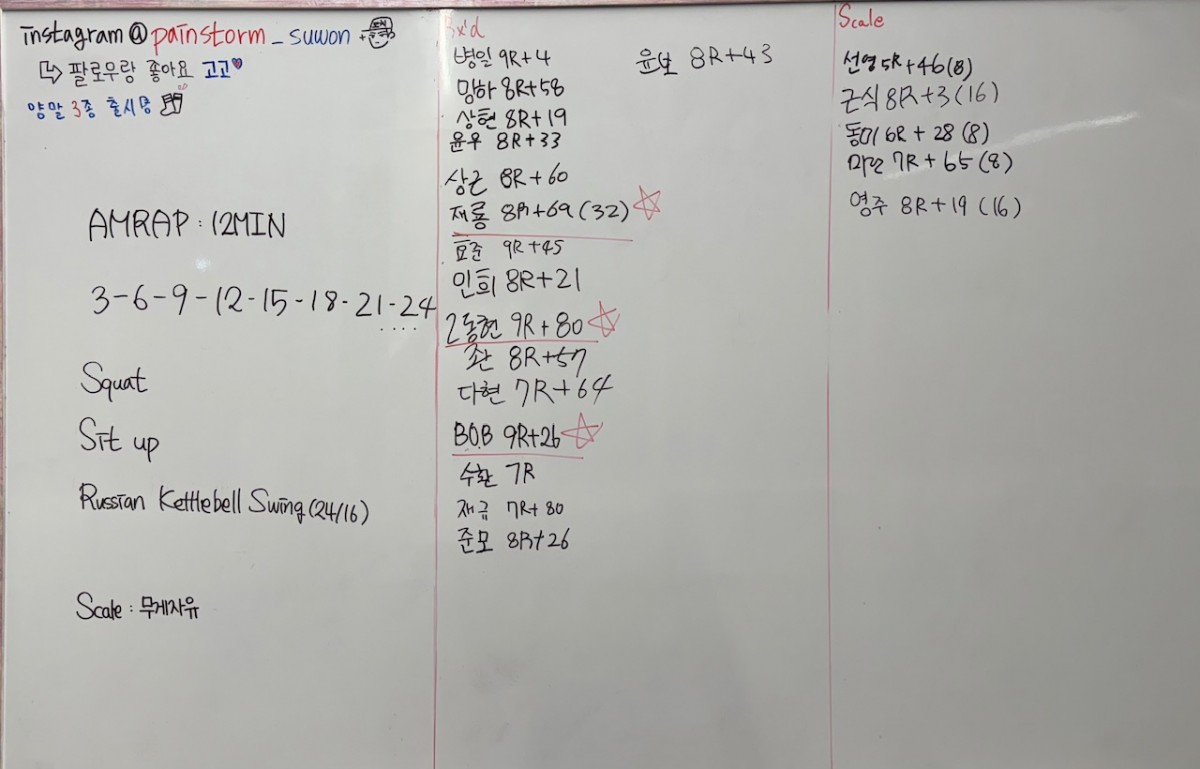 instagram @painstorm_suwon
팔로우랑 좋아요 고고
양말 3종 출시중
AMRAP : 12MIN
3-6-9-12-15-18-21-24
....
Squat
Sit up
Russian Kettlebell Swing (24/16)
Scale : 무게자유
Rx'd
병일 9R+4
밍하 8R+58
상현 8R+19
윤우 8R+33
상근 8R+60
재룡 8R+69 (32)
표준 9R+45
인희 8R+21
2동현 9R+80
8R+57
다현 7R+64
B.O.B 9R+26
수환 7R
재규 7R+80
준모 8R+26
윤보 8R+43
Scale
선영 5R+46 (8)
근식 8R+3 (16)
동미 6R + 28 (8)
7R + 65 (8)
영주 8R+19 (16)